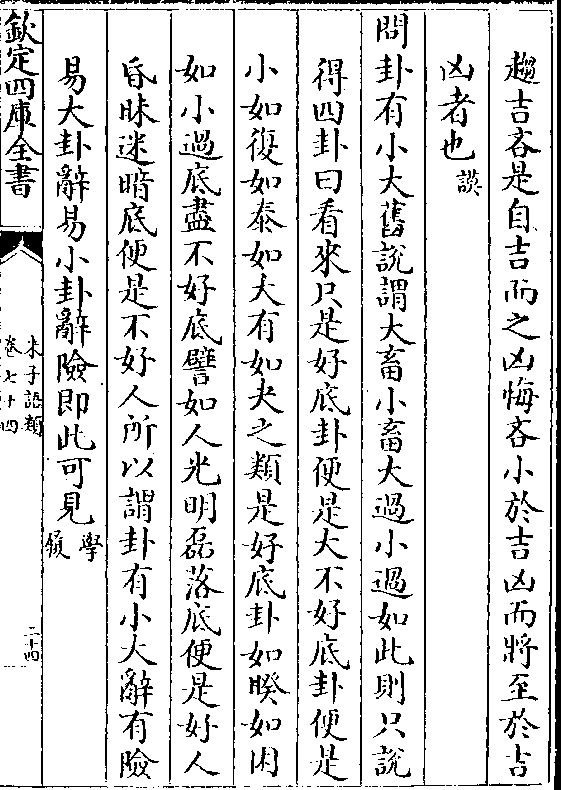 趨吉吝是自吉而之凶悔吝小於吉凶而將至於吉
凶者也謨
問卦有小大舊說謂大畜小畜大過小過如此則只說
得四卦曰看來只是好底卦便是大不好底卦便是
小如復如泰如大有如夬之類是好底卦如睽如困
如小過底盡不好底譬如人光明磊落底便是好人
昏昧迷暗底便是不好人所以謂卦有小大辭有險
易大卦辭易小卦辭險即此可見學履
欽定四庫全書
朱子語類
卷七十四
二十四